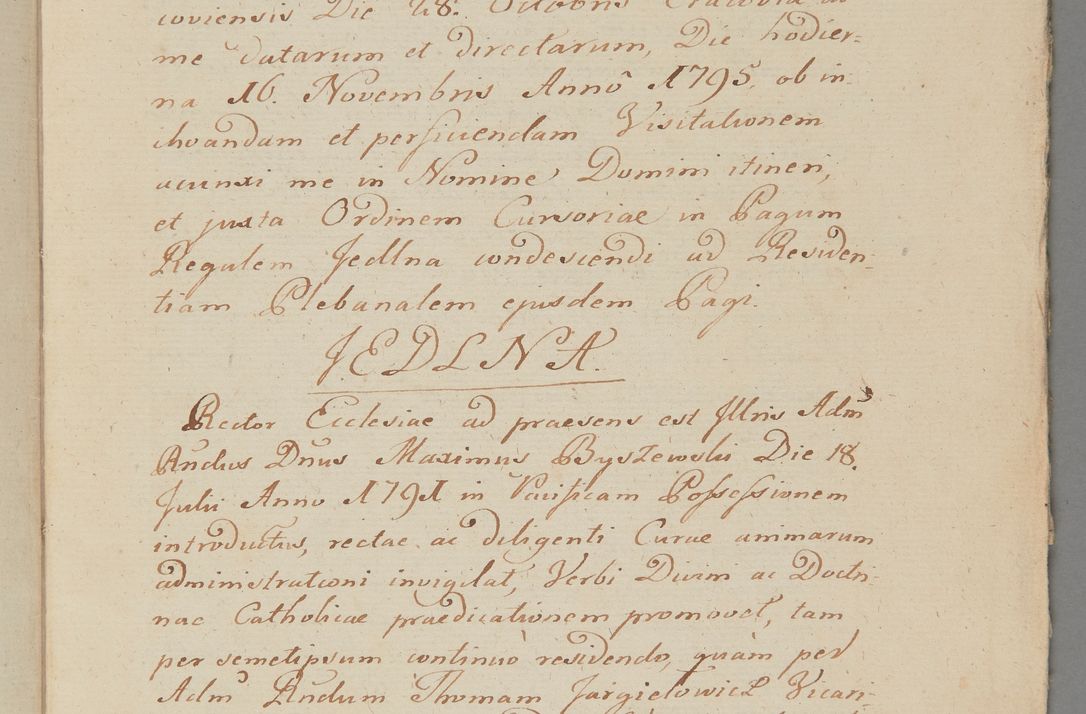 coviensis Die 28. Octobris Cracoviae ad
me datarum et directarum, Die hodier=
na 16. Novembris Annô 1795. ob in-
choandam et perficiendam Visitationem
accinxi me in Nomine Domini itineri,
et juxta Ordinem Cursoriae in Pagum
Regalem Jedlna condescendi ad Residen-
tiam Plebanalem ejusdem Pagi.
JEDLNA.
Rector Ecclesiae ad praesens est Jllris Adm
Rndus Dnus Maximus Byszewski Die 18.
Julii Anno 1791 in Pacificam Possessionem
introductus, rectae ac diligenti Curae animarum
administrationi invigilat, Verbi Divini ac Doctri-
nae Catholicae praedicationem promovet, tam
per semetipsum continuò residendo, quàm per
Adm Rndum Thomam Jargiełowicz Vicari-